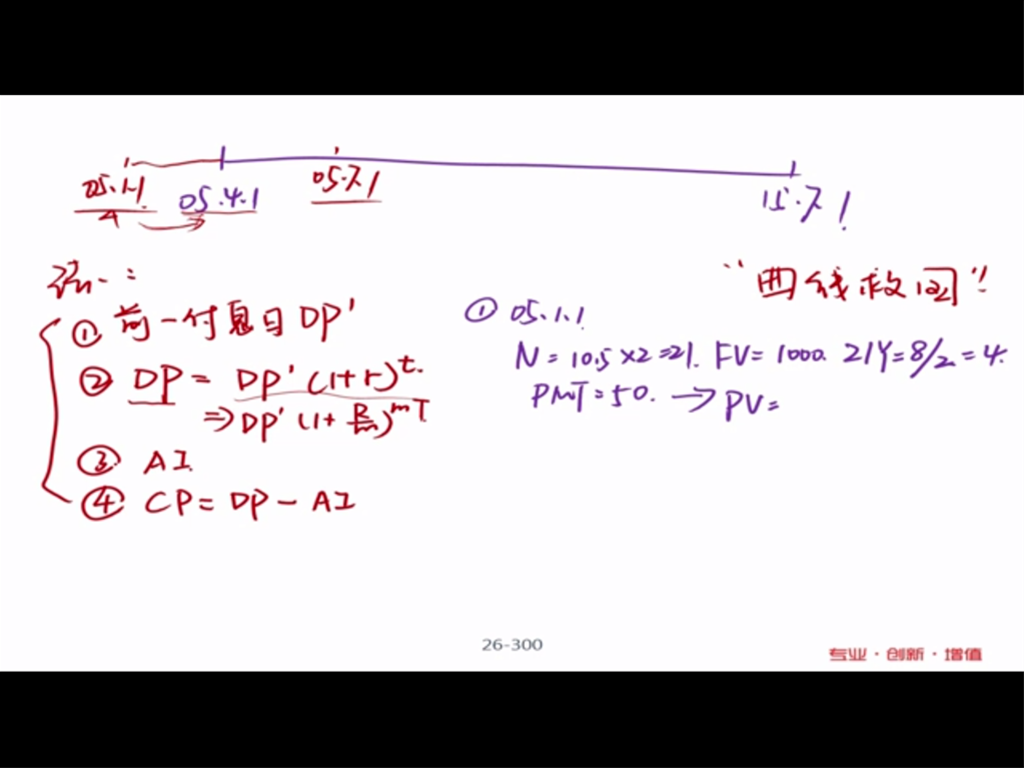 05.1.1
05.4.1
05.7.1
15.7.1
法一:
① 前一付息日 DP'
② DP = DP'(1+r)^t.
⇒ DP'(1+R/m)^mT
③ AI
④ CP = DP - AI
"曲线救国"
① 05.1.1
N = 10.5×2=21. FV= 1000. I/Y=8/2=4.
PMT=50. → PV=
26-300
专业·创新·增值